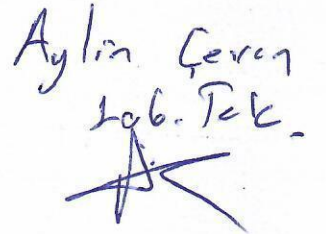 Aylin Çeven
Lab. Tek.